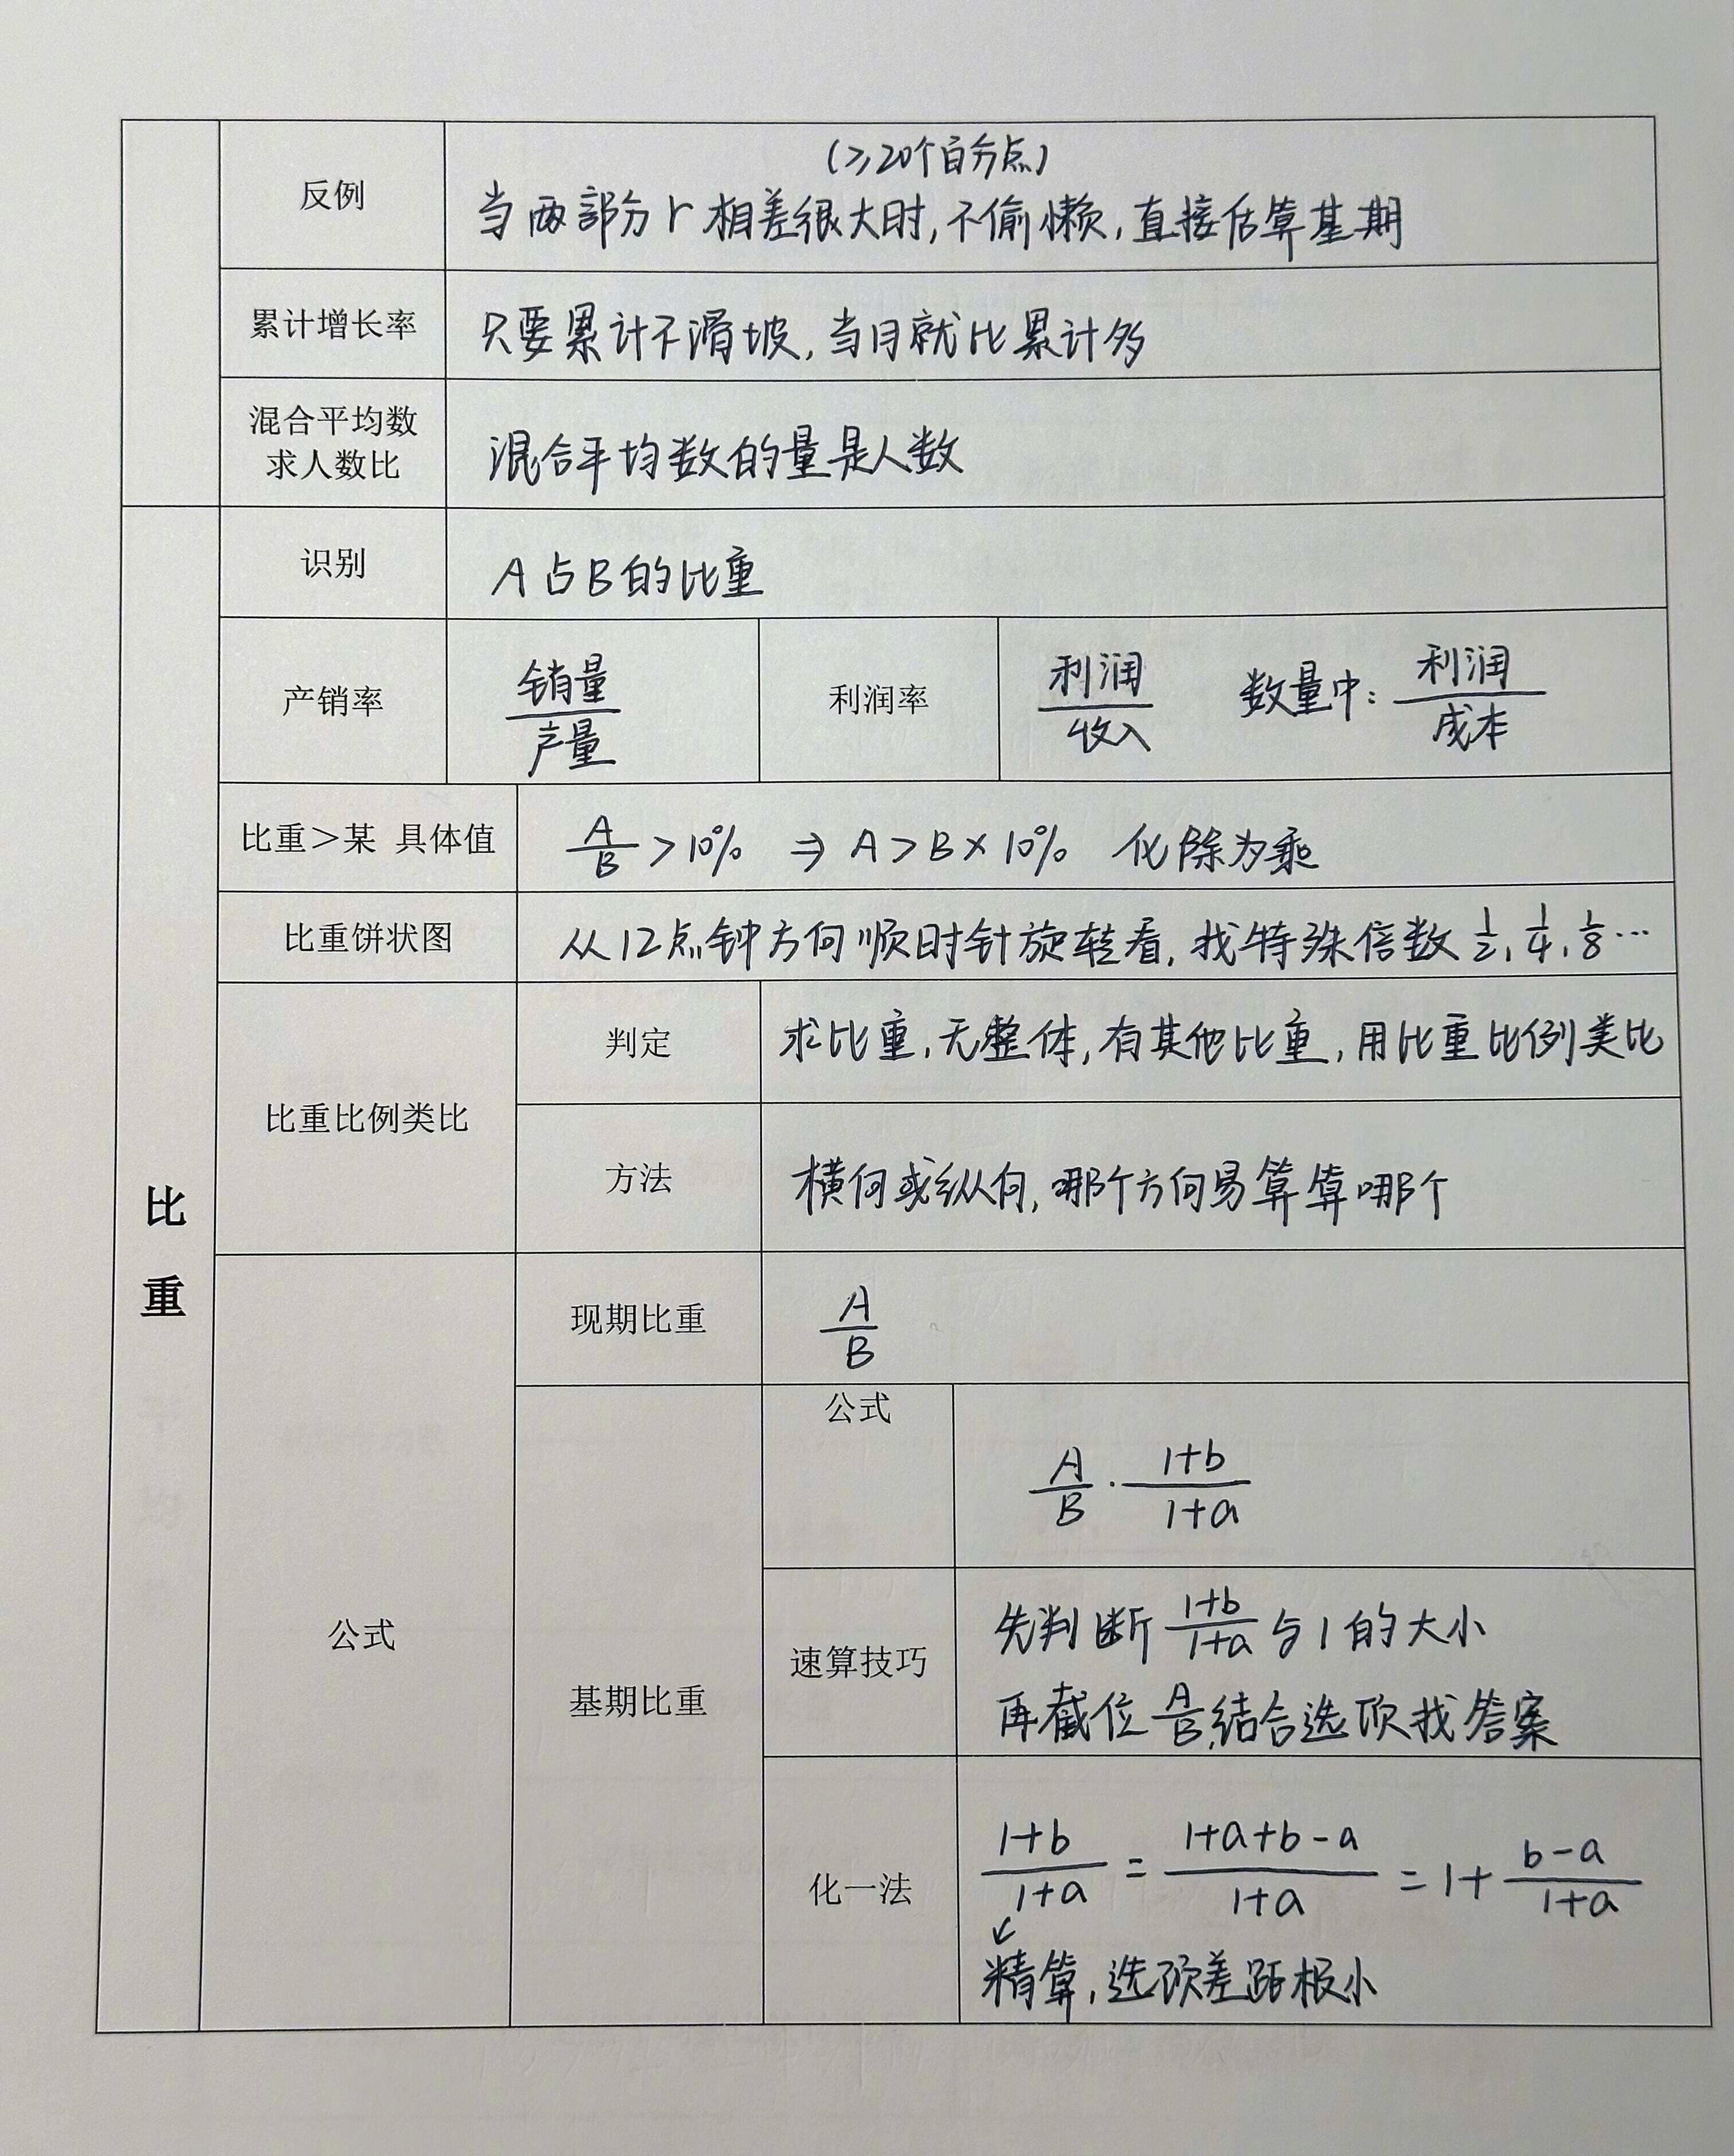 反例
(≥20个百分点)
当两部分r相差很大时,不偷懒,直接估算基期
累计增长率
只要累计不滑坡,当月就比累计多
混合平均数
求人数比
混合平均数的量是人数
比重
识别
A占B的比重
产销率
销量/产量
利润率
利润/收入 数量中:利润/成本
比重>某 具体值
A/B>10% ⇒ A>B×10% 化除为乘
比重饼状图
从12点钟方向顺时针旋转看,找特殊倍数 1/2,1/4,1/8…
比重比例类比
判定
求比重,无整体,有其他比重,用比重比例类比
方法
横向或纵向,哪个方向易算算哪个
公式
现期比重
A/B
基期比重
公式
A/B·(1+b)/(1+a)
速算技巧
先判断(1+b)/(1+a)与1的大小
再截位A/B,结合选项找答案
化一法
(1+b)/(1+a)=(1+a+b-a)/(1+a)=1+(b-a)/(1+a)
↙
精算,选项差距极小